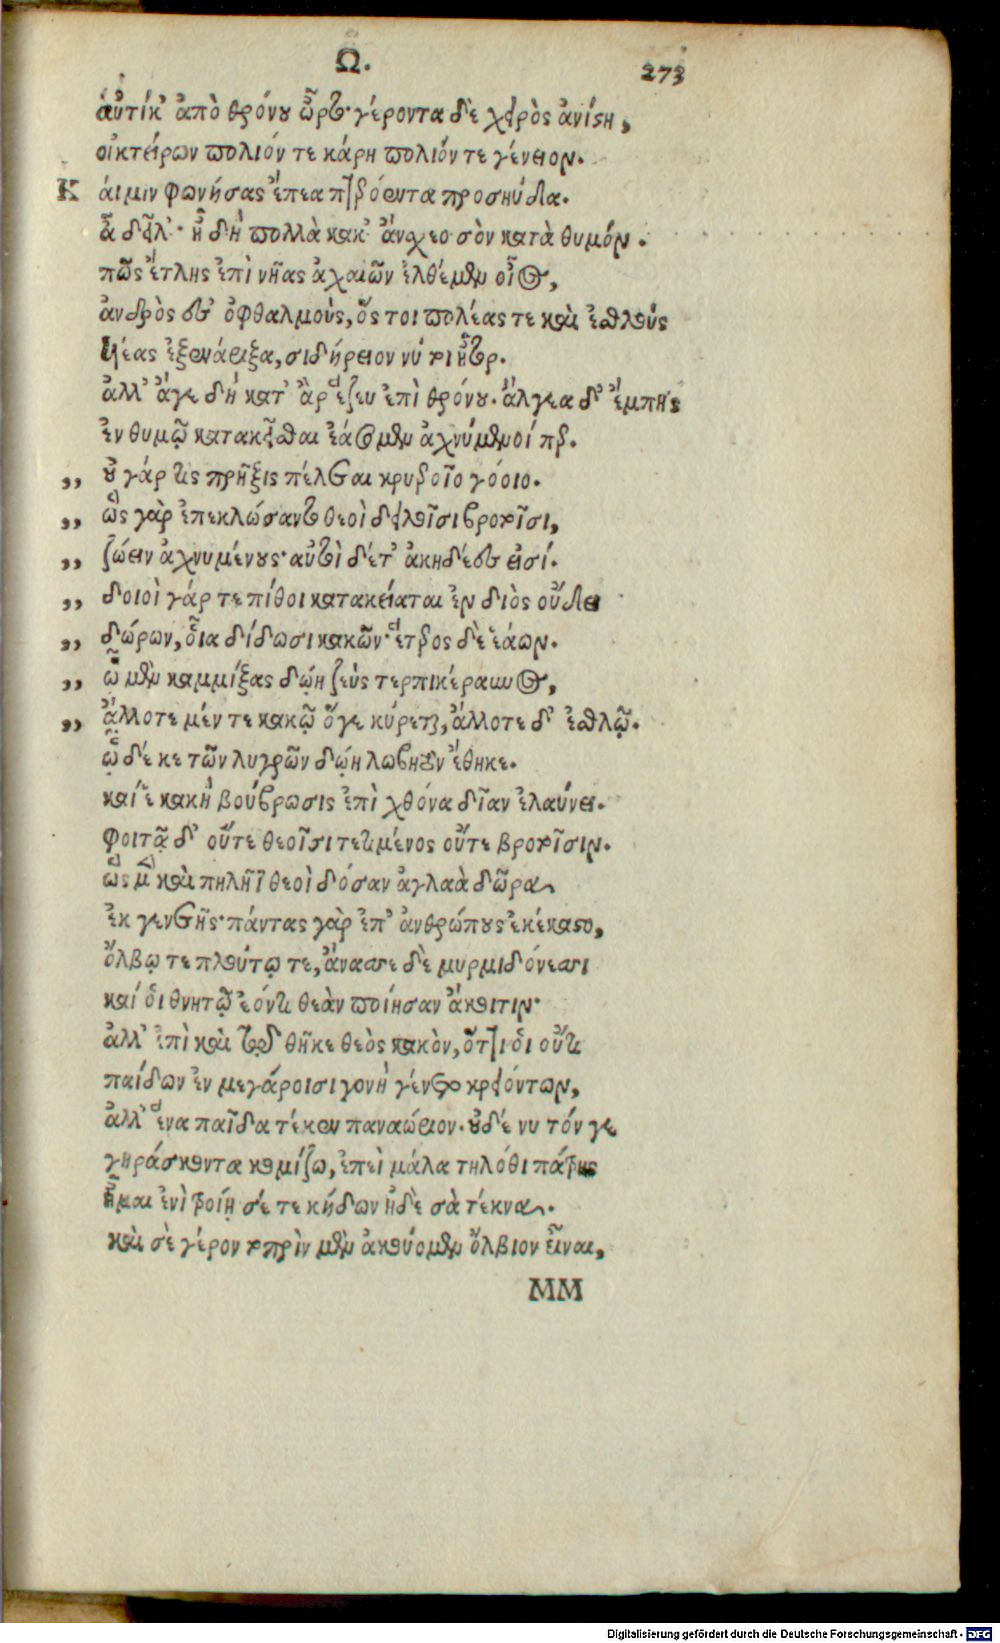 Ω.
273
αὐτίκ' ἀπὸ θρόνου ὦρτο· γέροντα δὲ χειρὸς ἀνίστη,
οἰκτείρων πολιόν τε κάρη πολιόν τε γένειον.
Κ αι μιν φωνήσας ἔπεα πτερόεντα προσηύδα.
ἆ δεῖλ'· ἦ δὴ πολλὰ κακ' ἄνσχεο σὸν κατὰ θυμόν.
πῶς ἔτλης ἐπὶ νῆας ἀχαιῶν ἐλθέμεν οἶος,
ἀνδρὸς ἐς ὀφθαλμοὺς, ὅς τοι πολέας τε καὶ ἐσθλοὺς
υἱέας ἐξενάριξα, σιδήρειον νύ τοι ἦτορ.
ἀλλ' ἄγε δὴ κατ' ἂρ ἕζευ ἐπὶ θρόνου. ἄλγεα δ' ἔμπης
ἐν θυμῷ κατακεῖσθαι ἐάσομεν ἀχνύμενοί περ.
„ οὐ γάρ τις πρῆξις πέλεται κρυεροῖο γόοιο.
„ ὣς γὰρ ἐπεκλώσαντο θεοὶ δειλοῖσι βροτοῖσι,
„ ζώειν ἀχνυμένους· αὐτοὶ δέ τ' ἀκηδέες εἰσί.
„ δοιοὶ γάρ τε πίθοι κατακείαται ἐν διὸς οὔδει
„ δώρων, οἷα δίδωσι κακῶν· ἕτερος δὲ ἑάων.
„ ᾧ μὲν καμμίξας δώῃ ζεὺς τερπικέραυνος,
„ ἄλλοτε μέν τε κακῷ ὅγε κύρεται, ἄλλοτε δ' ἐσθλῷ.
ᾧ δέ κε τῶν λυγρῶν δώῃ λωβητὸν ἔθηκε.
καί ἑ κακὴ βούβρωσις ἐπὶ χθόνα δῖαν ἐλαύνει.
φοιτᾷ δ' οὔτε θεοῖσι τετιμένος οὔτε βροτοῖσιν.
ὣς μὲν καὶ πηλῆϊ θεοὶ δόσαν ἀγλαὰ δῶρα
ἐκ γενετῆς· πάντας γὰρ ἐπ' ἀνθρώπους ἐκέκαστο,
ὄλβῳ τε πλούτῳ τε, ἄνασσε δὲ μυρμιδόνεσσι
καί οἱ θνητῷ ἐόντι θεὰν ποίησαν ἄκοιτιν·
ἀλλ' ἐπὶ καὶ τῷ θῆκε θεὸς κακὸν, ὅττι οἱ οὔτι
παίδων ἐν μεγάροισι γονὴ γένετο κρειόντων,
ἀλλ' ἕνα παῖδα τέκεν παναώριον. οὐδέ νυ τόν γε
γηράσκοντα κομίζω, ἐπεὶ μάλα τηλόθι πάτρης
ἧμαι ἐνὶ τροίῃ σέ τε κήδων ἠδὲ σὰ τέκνα.
καὶ σὲ γέρον τοπρὶν μὲν ἀκούομεν ὄλβιον εἶναι,
MM
Digitalisierung gefördert durch die Deutsche Forschungsgemeinschaft - DFG